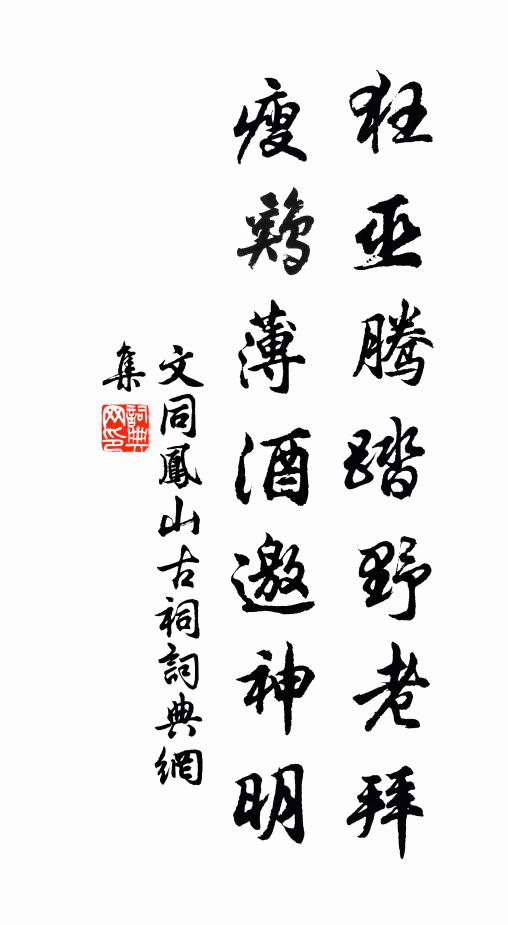 狂巫騰踏野老拜
瘦鷄薄酒邀神明
文同鳳山古祠詞典網
集
詞典
网印